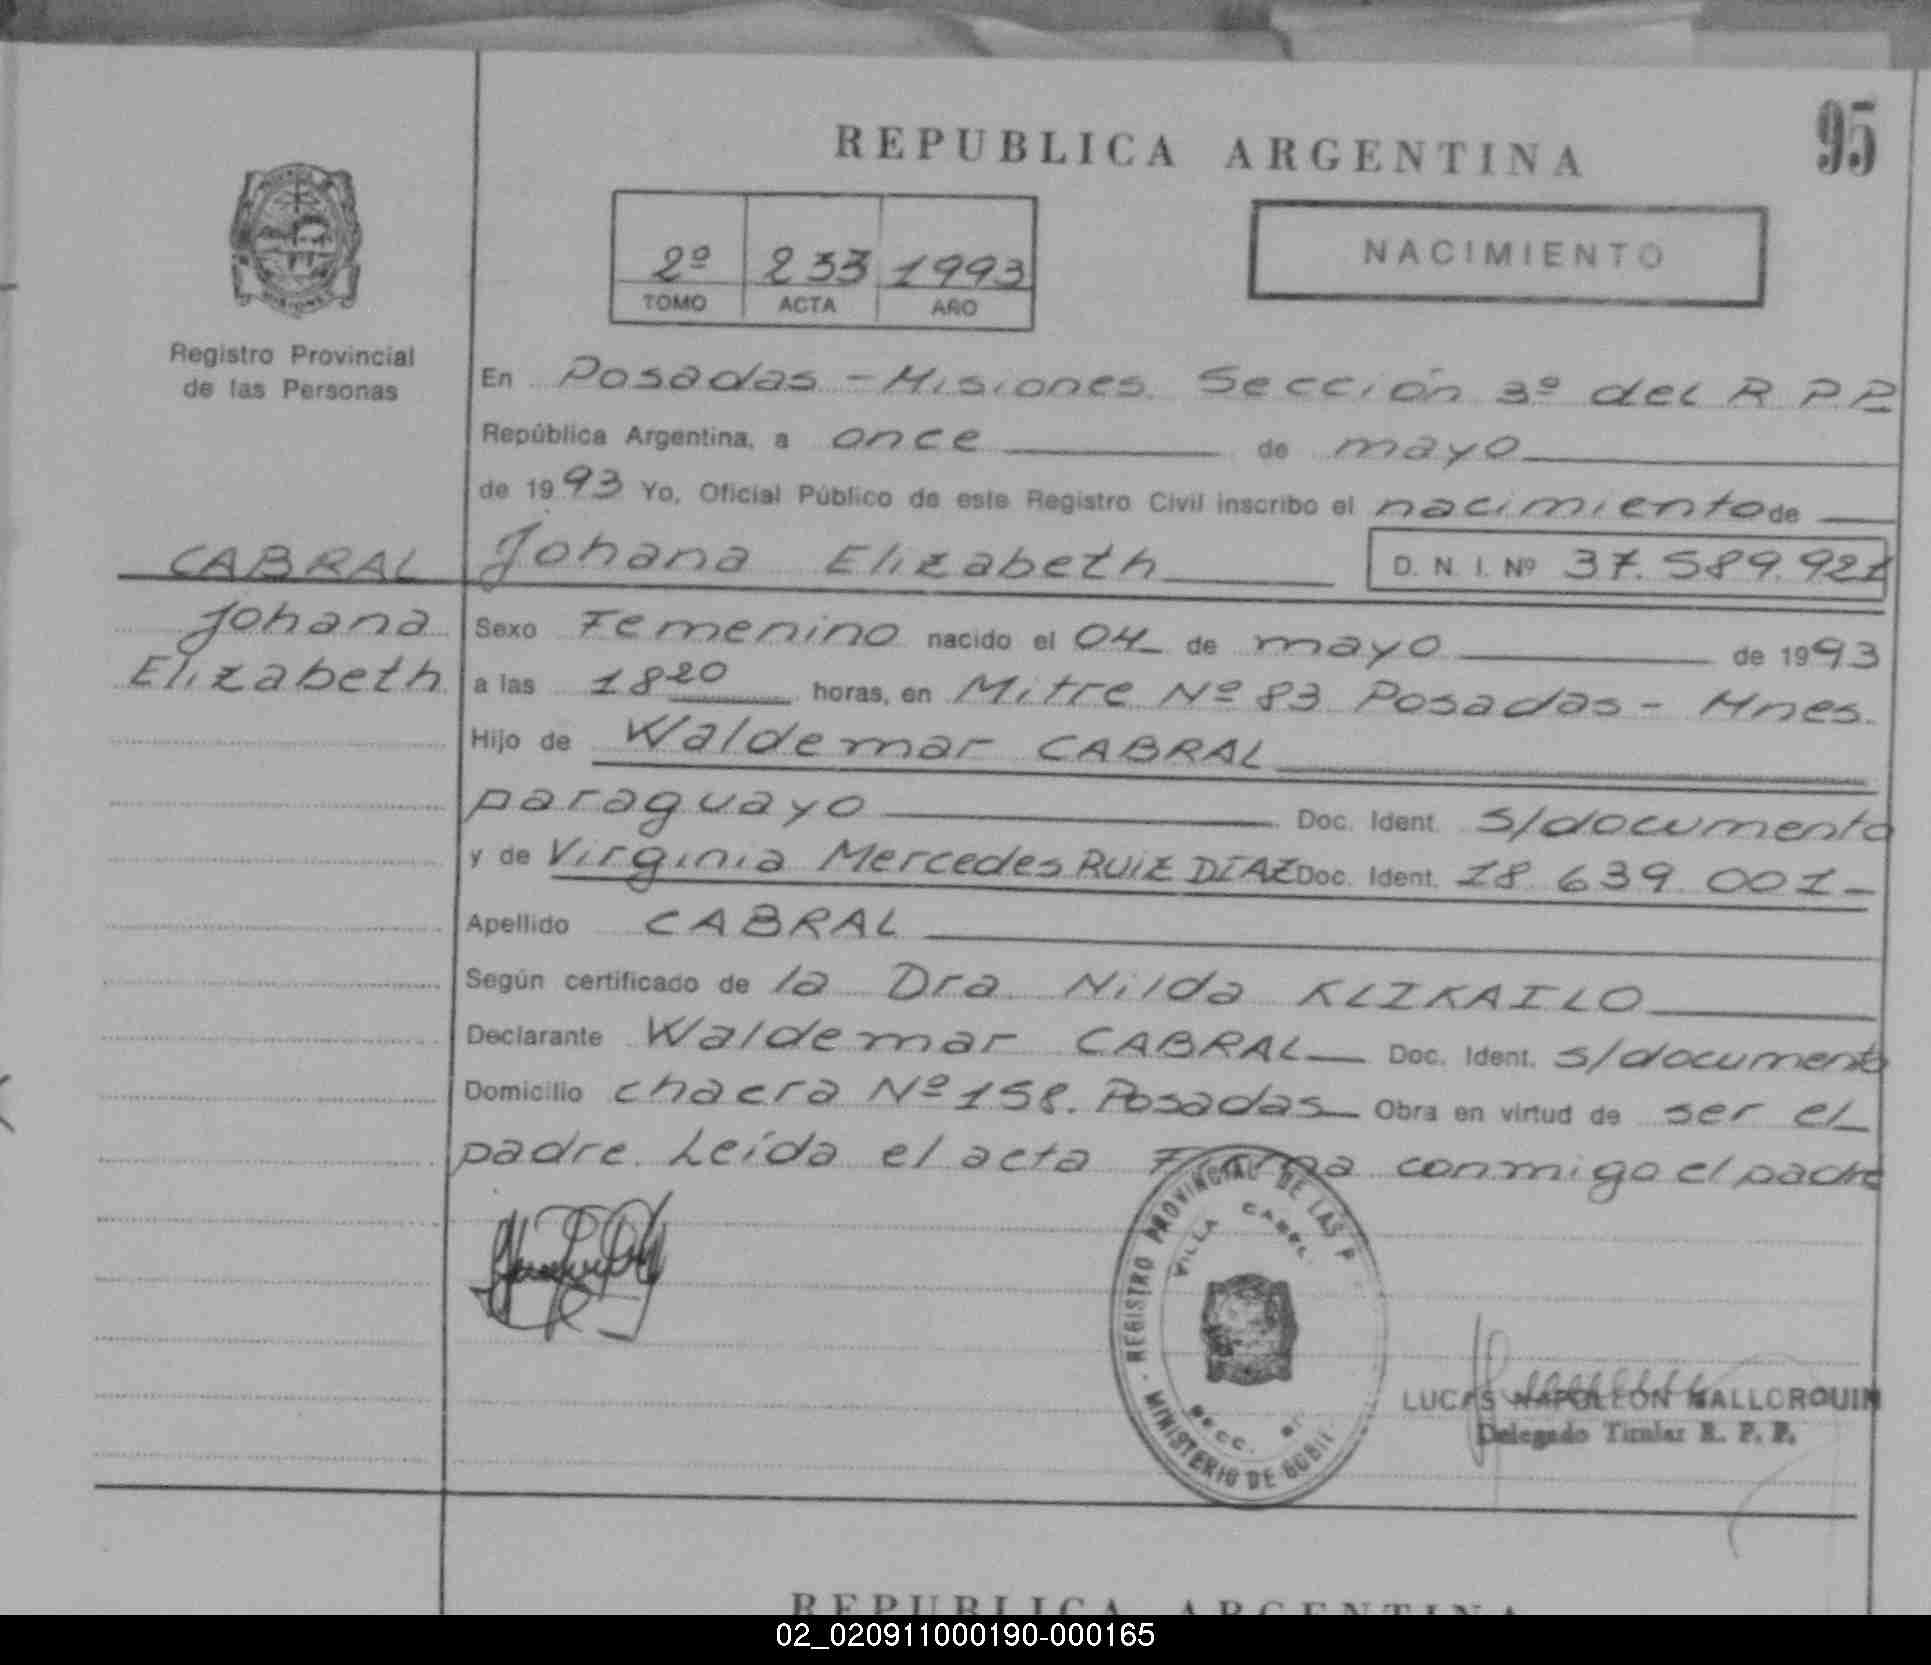 95
REPUBLICA ARGENTINA
2º 233 1993
TOMO ACTA AÑO
NACIMIENTO
Registro Provincial
de las Personas
En Posadas - Misiones. Sección 3º del R P P
República Argentina, a once de mayo
de 1993 Yo, Oficial Público de este Registro Civil inscribo el nacimiento de
CABRAL Johana Elizabeth D. N. I. Nº 37.589.921
Johana Sexo Femenino nacido el 04 de mayo de 1993
Elizabeth a las 18 20 horas, en Mitre Nº 83 Posadas - Mnes.
Hijo de Waldemar CABRAL
paraguayo Doc. Ident. s/documento
y de Virginia Mercedes RUIZ DIAZ Doc. Ident. 18.639.001-
Apellido CABRAL
Según certificado de la Dra. Nilda KLIKAILO
Declarante Waldemar CABRAL Doc. Ident. s/documento
Domicilio chacra Nº 158. Posadas Obra en virtud de ser el
padre. Leída el acta Firma conmigo el padre
REGISTRO PROVINCIAL DE LAS P
VILLA CABEL.
SECC.
MINISTERIO DE GOBI
LUCAS NAPOLEON MALLORQUIN
Delegado Titular R. P. P.
REPUBLICA ARGENTINA
02_020911000190-000165